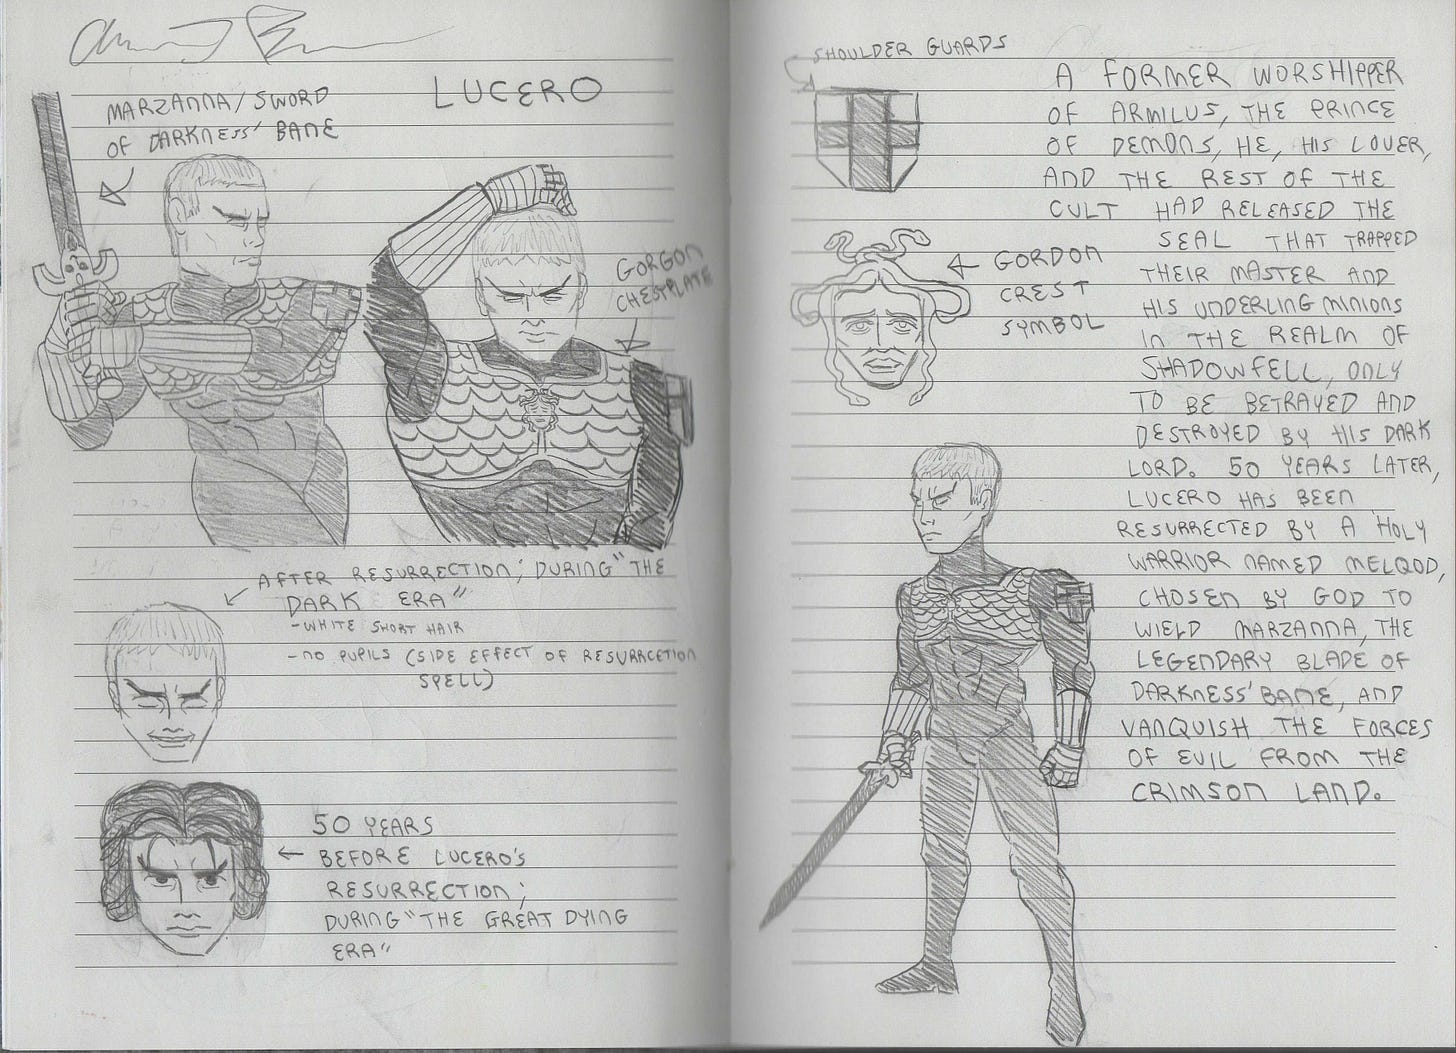 MARZANNA/SWORD
OF DARKNESS' BANE
LUCERO
GORGON
CHESTPLATE
AFTER RESURRECTION; DURING "THE
DARK ERA"
-WHITE SHORT HAIR
-NO PUPILS (SIDE EFFECT OF RESURRCETION
SPELL)
50 YEARS
BEFORE LUCERO'S
RESURRECTION;
DURING "THE GREAT DYING
ERA"
SHOULDER GUARDS
GORDON
CREST
SYMBOL
A FORMER WORSHIPPER
OF ARMILUS, THE PRINCE
OF DEMONS, HE, HIS LOVER,
AND THE REST OF THE
CULT HAD RELEASED THE
SEAL THAT TRAPPED
THEIR MASTER AND
HIS UNDERLING MINIONS
IN THE REALM OF
SHADOWFELL, ONLY
TO BE BETRAYED AND
DESTROYED BY HIS DARK
LORD. 50 YEARS LATER,
LUCERO HAS BEEN
RESURRECTED BY A HOLY
WARRIOR NAMED MELQOD,
CHOSEN BY GOD TO
WIELD MARZANNA, THE
LEGENDARY BLADE OF
DARKNESS' BANE, AND
VANQUISH THE FORCES
OF EVIL FROM THE
CRIMSON LAND.